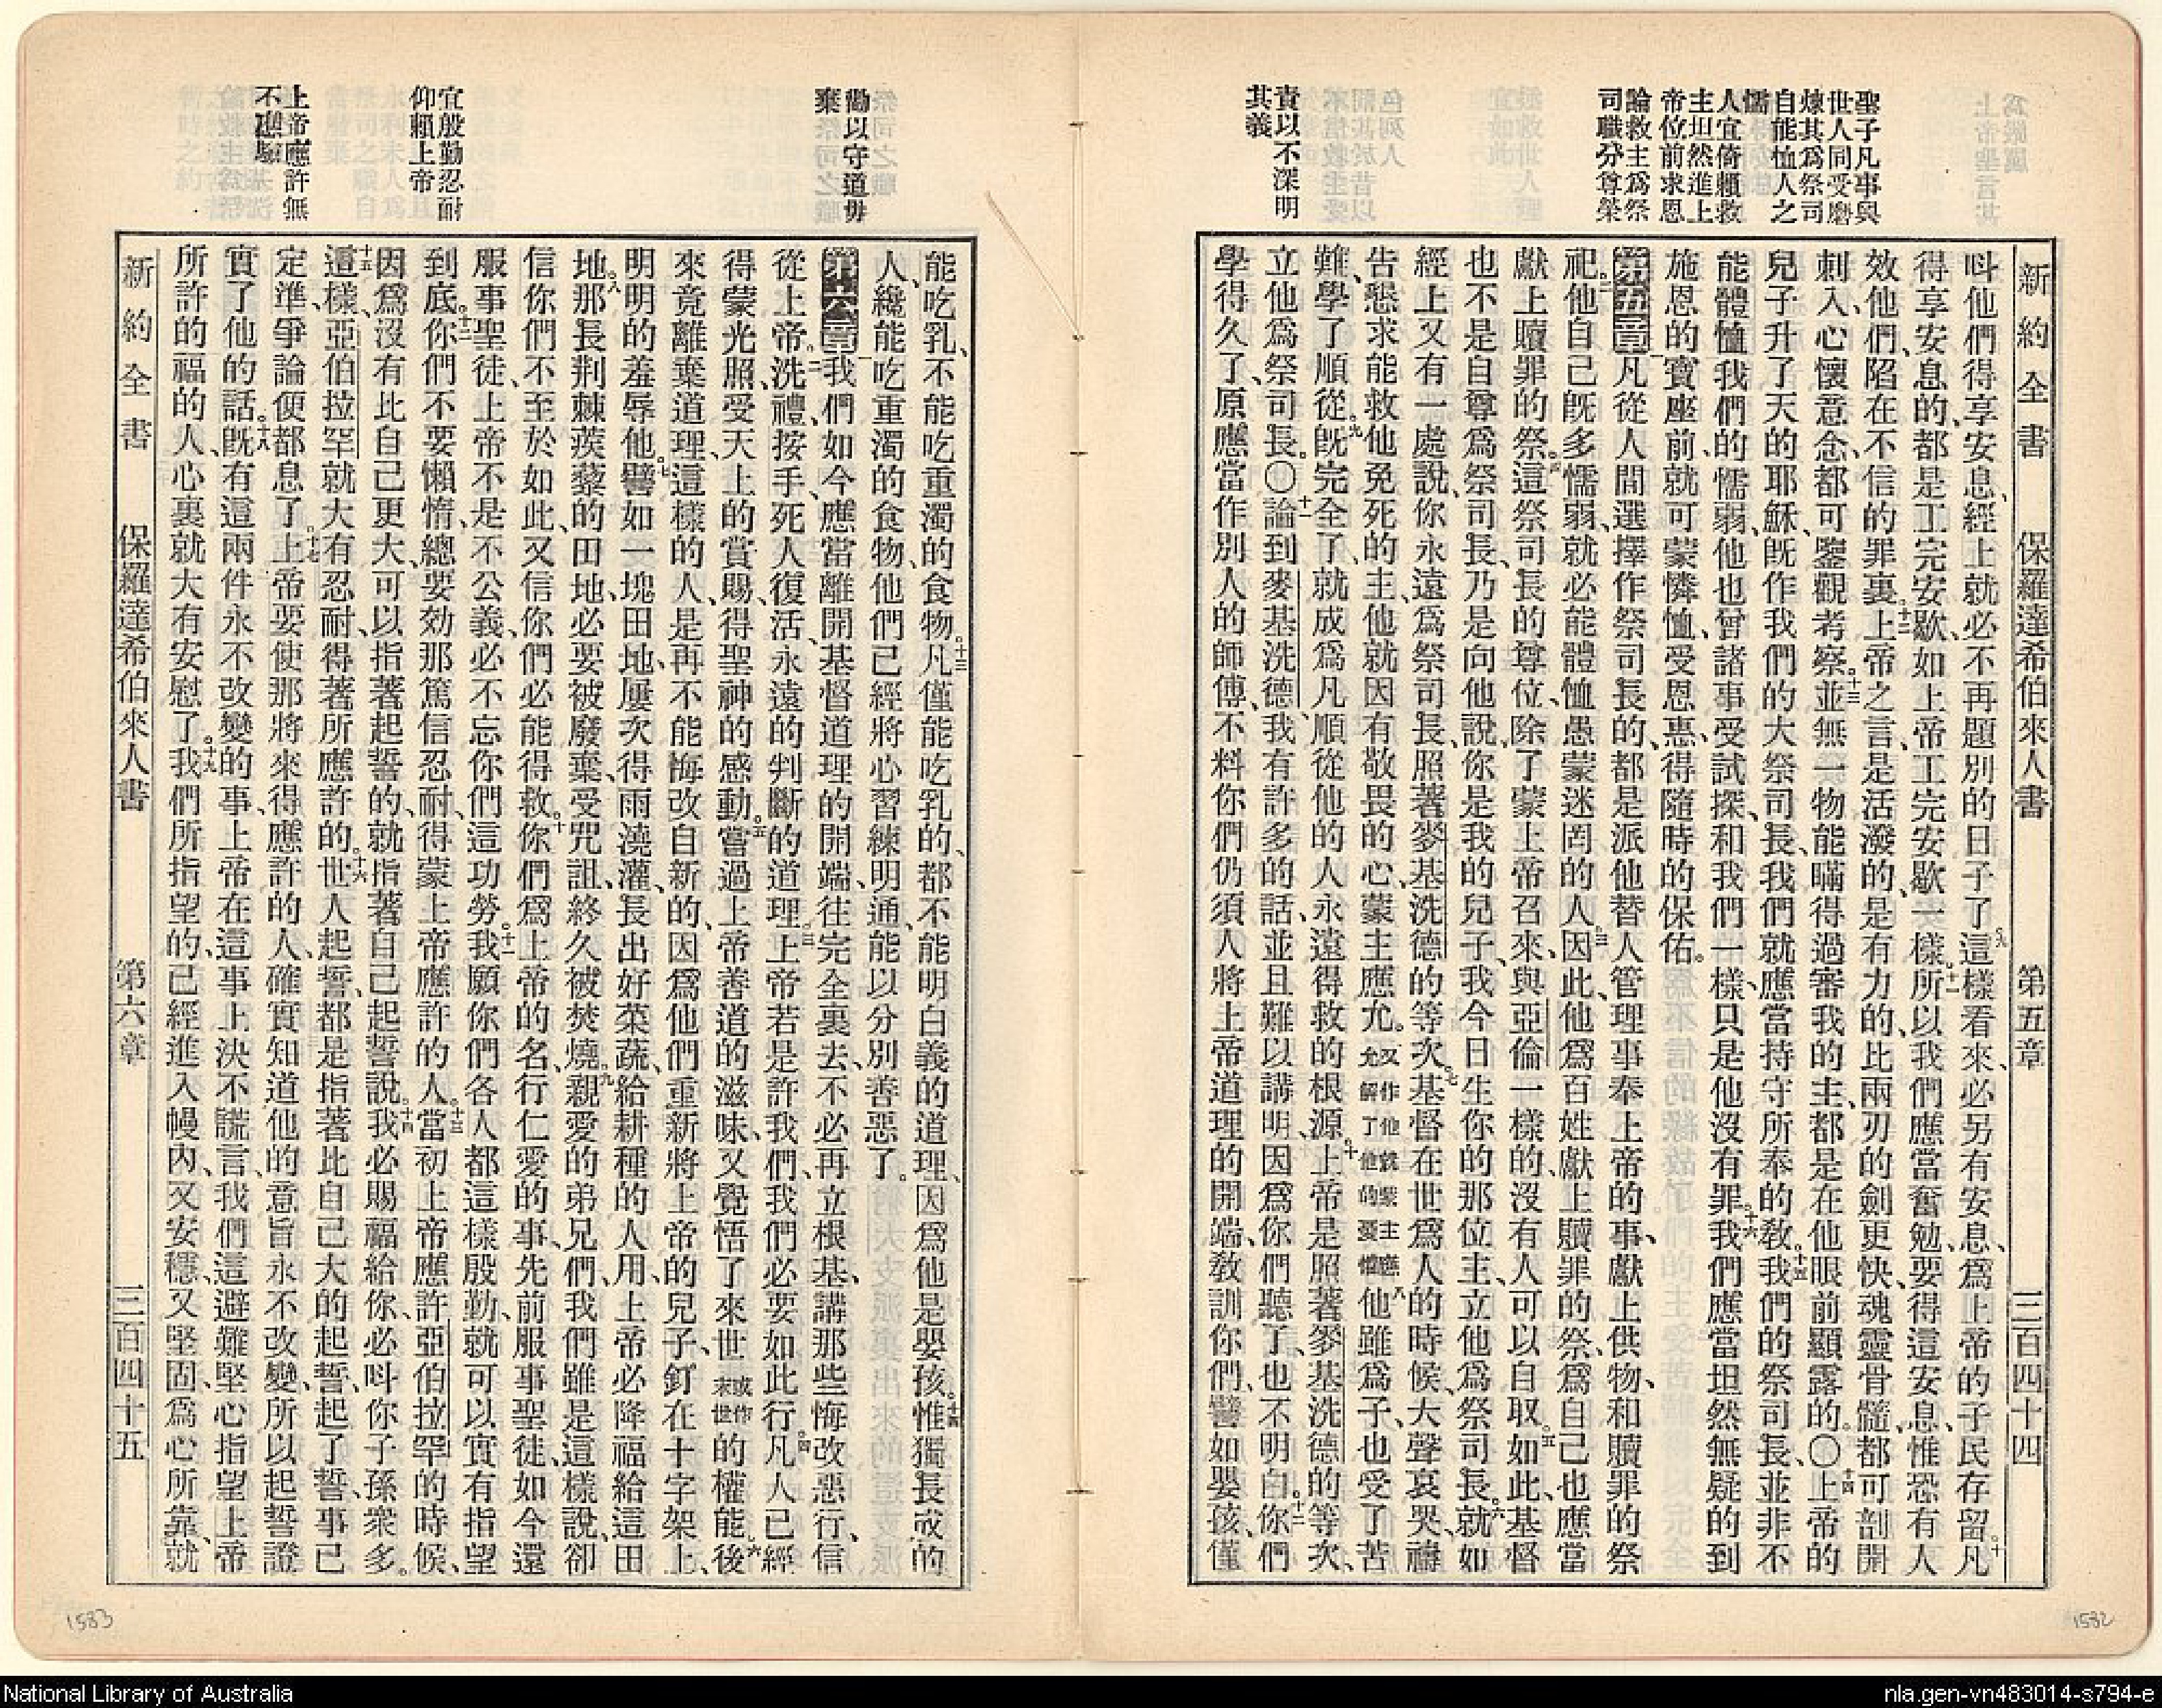 聖子凡事與
世人同受磨
煉其爲祭司
自能恤人之
懦
人宜倚賴救
主坦然進上
帝位前求恩
論救主爲祭
司職分尊榮
責以不深明
其義
新約全書 保羅達希伯來人書 第五章 三百四十四
呌他們得享安息、經上就必不再題別的日子了九這樣看來、必另有安息、爲上帝的子民存留。十凡
得享安息的、都是工完安歇、如上帝工完安歇一樣。十一所以我們應當奮勉、要得這安息、惟恐有人
效他們、陷在不信的罪裏。十二上帝之言、是活潑的、是有力的、比兩刃的劍更快、魂靈骨髓、都可剖開
刺入、心懷意念、都可鑒觀考察。十三並無一物能瞞得過審我的主、都是在他眼前顯露的。〇十四上帝的
兒子升了天的耶穌、旣作我們的大祭司長、我們就應當持守所奉的敎。十五我們的祭司長、並非不
能體恤我們的懦弱、他也曾諸事受試探、和我們一樣、只是他沒有罪。十六我們應當坦然無疑的到
施恩的寶座前、就可蒙憐恤、受恩惠、得隨時的保佑。
第五章一凡從人間選擇作祭司長的、都是派他替人管理事奉上帝的事、獻上供物、和贖罪的祭
祀。二他自己旣多懦弱、就必能體恤愚蒙迷罔的人。三因此他爲百姓獻上贖罪的祭、爲自己也應當
獻上贖罪的祭。四這祭司長的尊位、除了蒙上帝召來、與亞倫一樣的、沒有人可以自取。五如此、基督
也不是自尊爲祭司長、乃是向他說、你是我的兒子、我今日生你的那位主、立他爲祭司長。六就如
經上又有一處說、你永遠爲祭司長、照著麥基洗德的等次。七基督在世爲人的時候、大聲哀哭、禱
告懇求能救他免死的主、他就因有敬畏的心、蒙主應允。又作他就蒙主應允解了他的憂懼八他雖爲子、也受了苦
難、學了順從。九旣完全了、就成爲凡順從他的人永遠得救的根源。十上帝是照著麥基洗德的等次、
立他爲祭司長。〇十一論到麥基洗德、我有許多的話、並且難以講明、因爲你們聽了、也不明白。十二你們
學得久了、原應當作別人的師傅、不料你們仍須人將上帝道理的開端、敎訓你們、譬如嬰孩、僅
1532
勸以守道毋
棄
宜殷勤忍耐
仰賴上帝
上帝應許無
不應驗
能吃乳、不能吃重濁的食物。十三凡僅能吃乳的、都不能明白義的道理、因爲他是嬰孩。十四惟獨長成的
人、纔能吃重濁的食物、他們已經將心習練明通、能以分別善惡了。
第六章一我們如今應當離開基督道理的開端、往完全裏去、不必再立根基、講那些悔改惡行、信
從上帝。二洗禮、按手、死人復活、永遠的判斷的道理。三上帝若是許我們、我們必要如此行。四凡人已經
得蒙光照、受天上的賞賜、得聖神的感動。五嘗過上帝善道的滋味、又覺悟了來世或作末世的權能、六後
來竟離棄道理、這樣的人、是再不能悔改自新的、因爲他們重新將上帝的兒子、釘在十字架上、
明明的羞辱他。七譬如一塊田地、屢次得雨澆灌、長出好菜蔬、給耕種的人用、上帝必降福給這田
地。八那長荆棘蒺藜的田地、必要被廢棄、受咒詛、終久被焚燒。九親愛的弟兄們、我們雖是這樣說、卻
信你們不至於如此、又信你們必能得救。十你們爲上帝的名、行仁愛的事、先前服事聖徒、如今還
服事聖徒、上帝不是不公義、必不忘你們這功勞。十一我願你們各人都這樣殷勤、就可以實有指望
到底。十二你們不要懶惰、總要效那篤信忍耐、得蒙上帝應許的人。十三當初上帝應許亞伯拉罕的時候、
因爲沒有比自己更大、可以指著起誓的、就指著自己起誓說。十四我必賜福給你、必呌你子孫衆多。
十五這樣、亞伯拉罕就大有忍耐、得著所應許的。十六世人起誓、都是指著比自己大的起誓、起了誓、事已
定準、爭論便都息了。十七上帝要使那將來得應許的人、確實知道他的意旨永不改變、所以起誓證
實了他的話。十八旣有這兩件永不改變的事、上帝在這事上決不謊言、我們這避難堅心指望上帝
所許的福的人、心裏就大有安慰了。十九我們所指望的、已經進入幔內、又安穩、又堅固、爲心所靠、就
新約全書 保羅達希伯來人書 第六章 三百四十五
1533
National Library of Australia
nla.gen-vn483014-s794-e